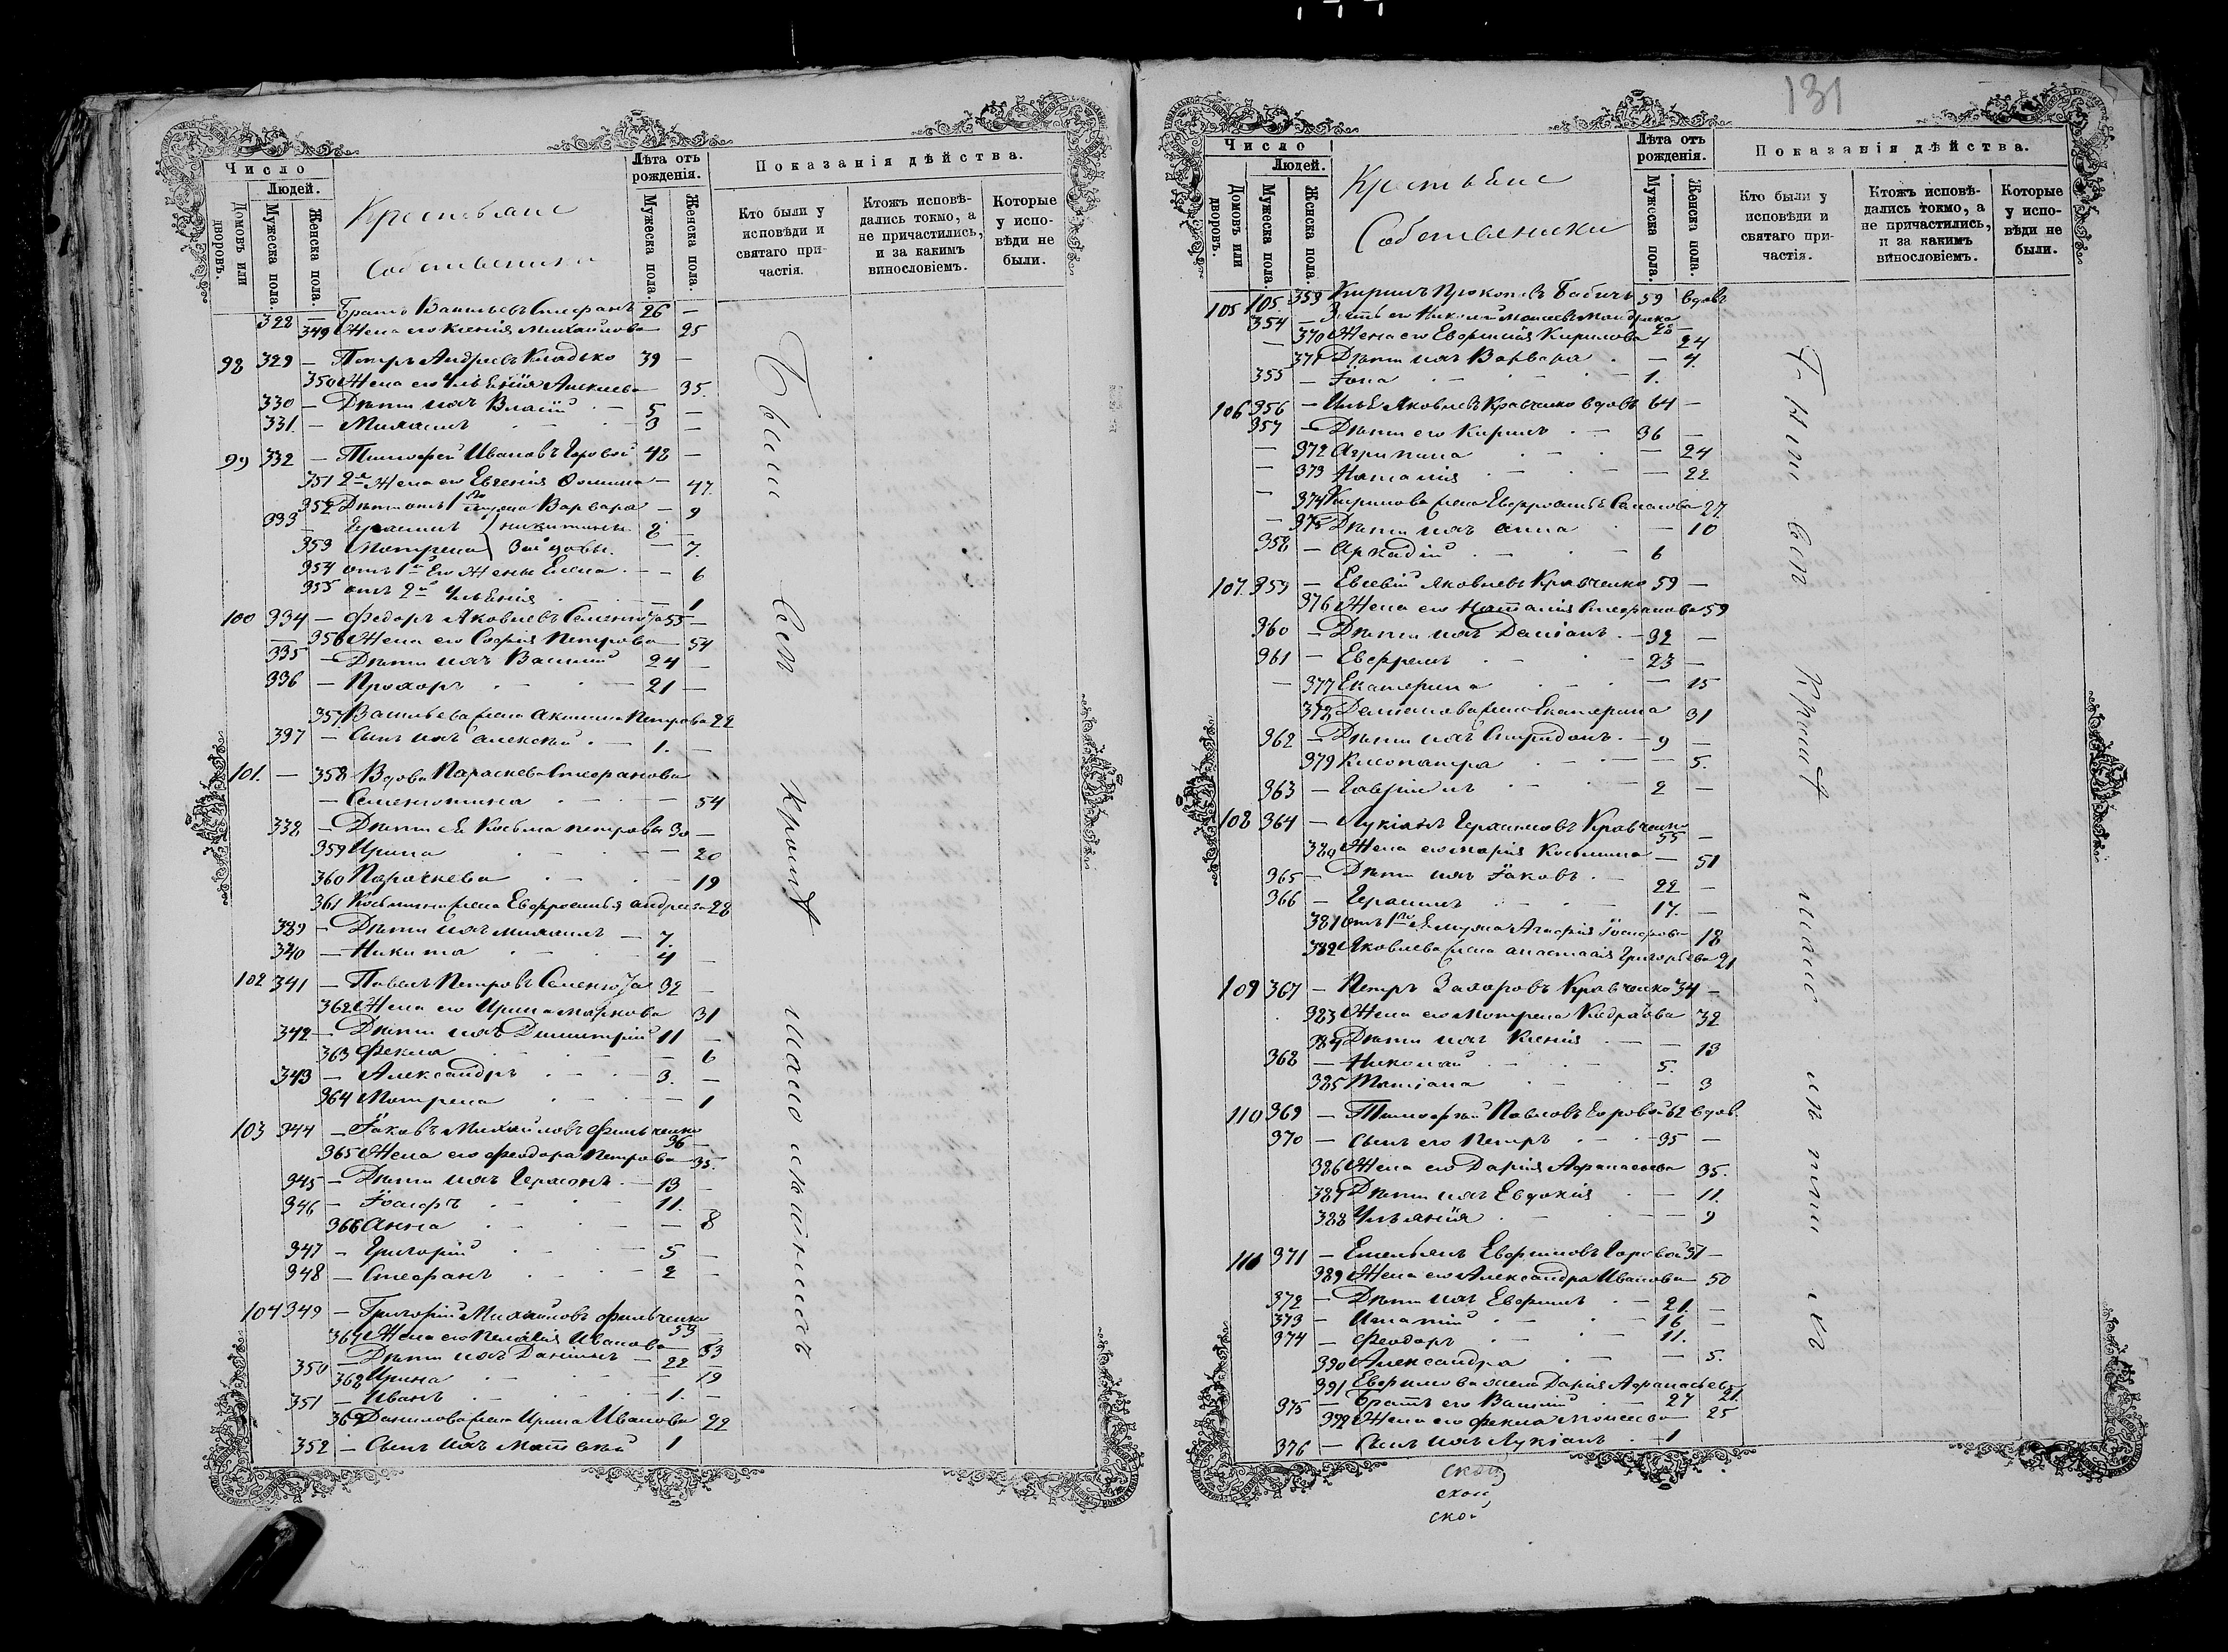 Число
Людей.
Домовъ или дворовъ.
Мужеска пола.
Женска пола.
Крестьяне
Собственики
Лѣта отъ рожденія.
Мужеска пола.
Женска пола.
Показанія дѣйства.
Кто были у исповѣди и святаго причастія.
Ктожъ исповѣдались токмо, а не причастились, и за какимъ винословіемъ.
Которые у исповѣди не были.
328 — Братъ Васильевъ Стефанъ 26 —
349 Жена его Ксенія Михайлова 25
98 329 — Петръ Андреевъ Кладько 39 —
350 Жена его Ульянія Алексиева 35.
330 — Дѣти ихъ Власій 5 —
331. — Михаилъ 3 —
99 332 — Тимофей Ивановъ Горовой 48 —
351 2я Жена его Евгенія Фомина — 47.
352 Дѣти отъ 1го мужа Варвара — 9
333 — Герасимъ Никитины 8 —
353 Мотрена — 7.
354 отъ 1й Его Жены Елена — 6
355 отъ 2й Ульянія — 1
100 334 — Федоръ Яковлевъ Семенюта 55 —
— 356 Жена его Софія Петрова 54
335 — Дѣти ихъ Василій 24 —
336 — Прохоръ 21 —
357 Васильева жена Акилина Петрова 22
337 — Сынъ ихъ Алексѣй 1. —
101. — 358 Вдова Параскева Стефанова
— Семенютина — 54
338 — Дѣти ея Косьма Петровы 30 —
359 Ирина — 20
360 Параскева — 19
361 Косьмина жена Евфросинья Андреева 28
339 — Дѣти ихъ Михаилъ — 7.
340 — Никита 4 —
102 341 — Павелъ Петровъ Семенюта 32 —
362 Жена его Ирина Маркова 31
342 — Дѣти ихъ Димитрій 11 —
363 Фекла — 6
343 — Александръ 3. —
364 Мотрена — 1
103 344 — Іаковъ Михайловъ Фильченко 36 —
365 Жена его Феодора Петрова 35.
345 — Дѣти ихъ Герасимъ 13 —
346 — Іосифъ 11. —
366 Анна — 8
347 — Григорій 5 —
348 — Стефанъ 2 —
104 349 — Григорій Михайловъ Фильченко 53 —
367 Жена его Пелагія Иванова 53
350 — Дѣти ихъ Даніилъ — 22 —
368 Ирина — 19
351 — Иванъ 1. —
369 Данилова жена Ирина Иванова 22
352 — Сынъ ихъ Матвѣй 1
Были Сей
131
Число
Людей.
Домовъ или дворовъ.
Мужеска пола.
Женска пола.
Крестьяне
Собственики
Лѣта отъ рожденія.
Мужеска пола.
Женска пола.
Показанія дѣйства.
Кто были у исповѣди и святаго причастія.
Ктожъ исповѣдались токмо, а не причастились, и за какимъ винословіемъ.
Которые у исповѣди не были.
105 105. 359 Кирилъ Прокопіевъ Бабичъ 59 вдовъ
354 — Зять его Николай Моисеевъ Мандрика 28 —
— 370 Жена его Евфимія Кирилова 24
371 Дѣти ихъ Варвара — 4.
355 — Іона 1.
106 356 — Илья Яковлевъ Кравченко вдовъ 64 —
357 — Дѣти его Кирилъ 36 —
— 372 Агрипина — 24
— 373 Наталія — 22
— 374 Кирилова жена Евфросинья 27
— 375 Дѣти ихъ Анна — 10
358 — Аркадій 6
107. 359 — Евсевій Яковлевъ Кравченко 59 —
376 Жена его Наталія Стефанова 59
360 — Дѣти ихъ Даміанъ 32 —
361 — Евфремъ 23 —
— 377 Екатерина — 15
378 Даміанова жена Екатерина 31
362 — Дѣти ихъ Спиридонъ 9 —
379 Клеопатра — 5.
363 — Гавріилъ 2 —
108 364 — Лукіанъ Герасимовъ Кравченко 55 —
380 Жена его Марія Косьмина — 51
365 — Дѣти ихъ Іаковъ 22 —
366 — Герасимъ 17. —
381 отъ 1го Ея мужа Агафія Іосифова 18
382 Яковлева жена Анастасія Григорьева 21
109 367 — Петръ Захаровъ Кравченко 34 —
383 Жена его Мотрена 32
384 Дѣти ихъ Ксенія — 13
368 — Николай 5.
385 Татіана — 3
110 369 — Тимофей Павловъ Горовой 62 вдов.
370 — Сынъ его Петръ 35 —
386 Жена его Дарія Афанасьева 35.
387 Дѣти ихъ Евдокія — 11.
388 Ульянія — 9
111 371 — Емельянъ Евфимовъ Горовой 51 —
389 Жена его Александра Иванова 50
372 — Дѣти ихъ Евфимъ 21. —
373 — Игнатій 16 —
374 — Феодоръ 11. —
390 Александра — 5.
391 Евфимова жена Дарія Афанасьева 21.
375 — Братъ его Василій 27
392 Жена его Фекла Моисеева 25
376 — Сынъ ихъ Лукіанъ 1
ской
ской
ской